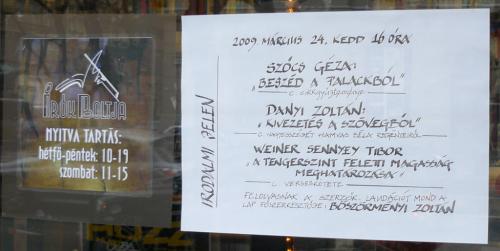 ÍRÓK BOLTJA
NYITVA TARTÁS:
hétfő-péntek: 10-19
szombat: 11-15
IRODALMI JELEN
2009. MÁRCIUS 24. KEDD 16 ÓRA
SZŐCS GÉZA:
„BESZÉD A PALACKBÓL”
C. cikkgyűjteménye
DANYI ZOLTÁN:
„KIVEZETÉS A SZÖVEGBŐL”
C. NAGYESSZÉJÉT HAMVAS BÉLA REGÉNYEIRŐL
WEINER SENNYEY TIBOR
„A TENGERSZINT FELETTI MAGASSÁG
MEGHATÁROZÁSA”
C. VERSESKÖTETE
FELOLVASNAK A SZERZŐK. LAUDÁCIÓT MOND A
LAP FŐSZERKESZTŐJE: BÖSZÖRMÉNYI ZOLTÁN